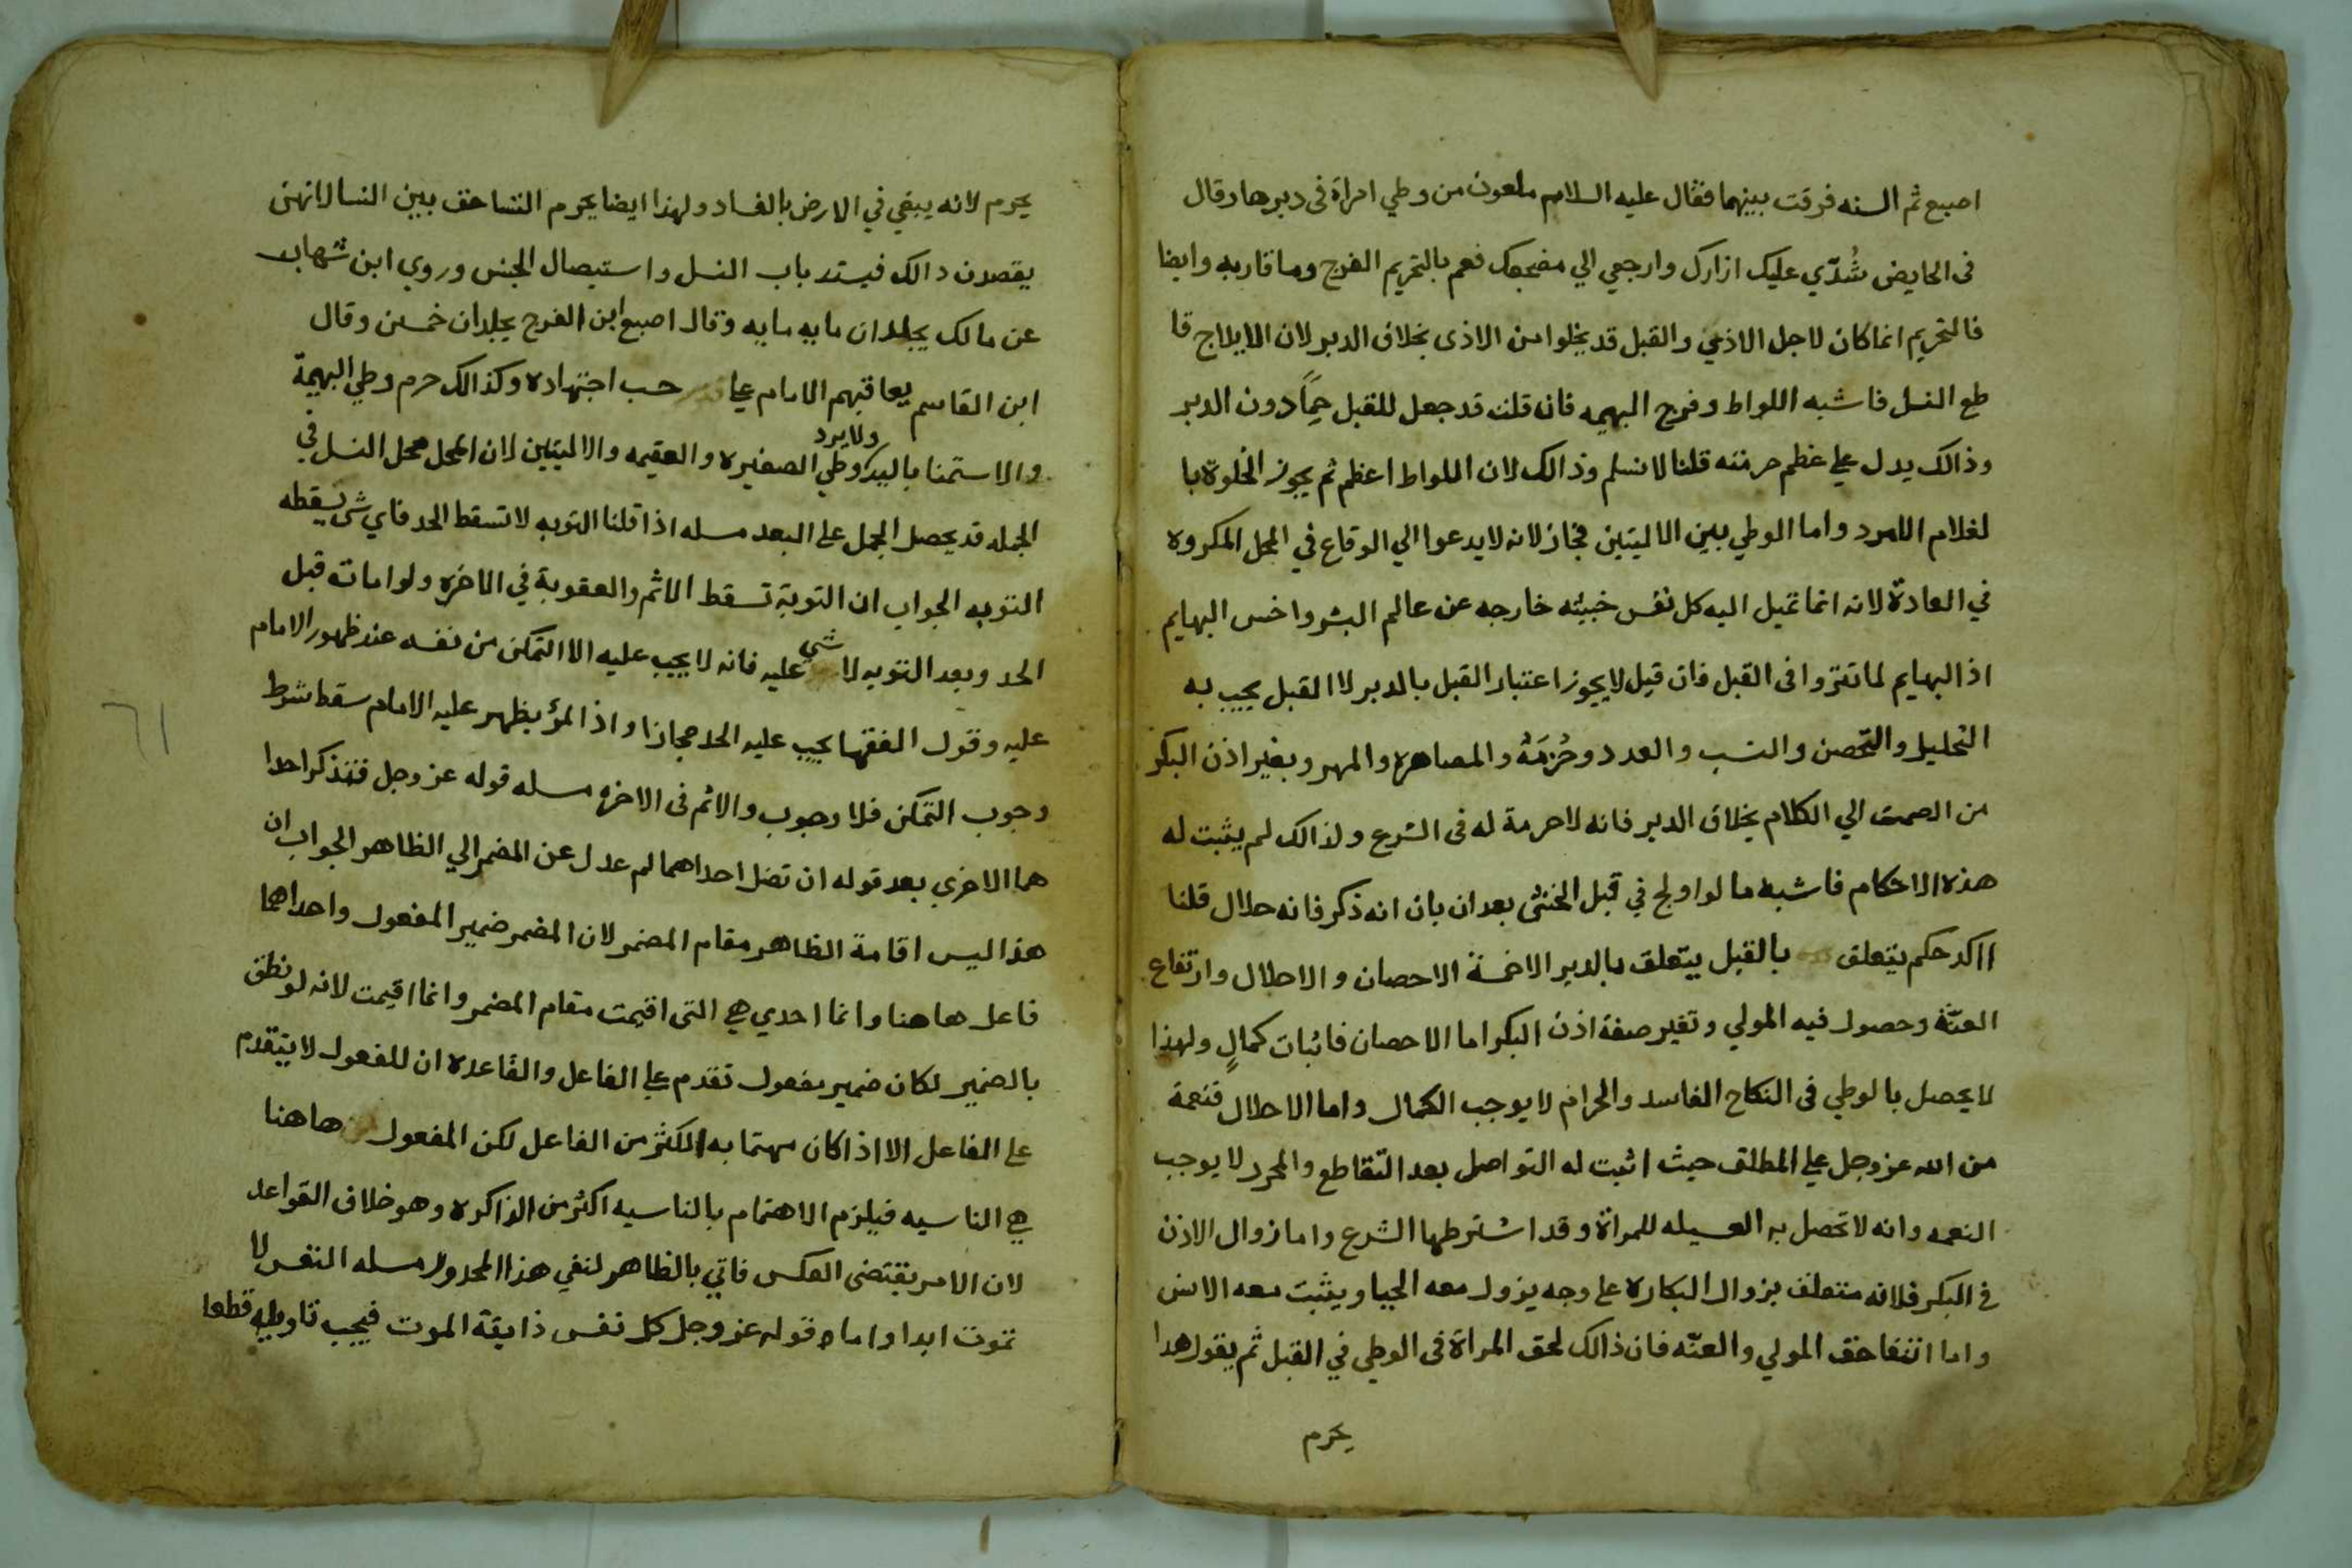 اصبع ثم السنه فرقت بينهما فقال عليه السلام ملعون من وطي امراة فى دبرها وقال
فى الحايض شُدّي عليك ازارك وارجعي الي مضجعك فعم بالتحريم الفرج وما قاربه وايضا
فالتحريم انما كان لاجل الاذي والقبل قد يخلوا من الاذى بخلاف الدبر لان الايلاج قا
طع النسل فاشبه اللواط وفرج البهيمه فان قلت قد جعل للقبل حِمًا دون الدبر
وذالك يدل علي عظم حرمته قلنا لا نسلم وذالك لان اللواط اعظم ثم يجوز الخلوة با
لغلام الامرد واما الوطي بين الاليتين فجاز لانه لا يدعوا الي الوقاع في المحل المكروه
في العادة لانه انما تميل اليه كل نفس خبيثه خارجه عن عالم البشر واخس البهايم
اذ البهايم لما تنزوا فى القبل فان قيل لا يجوز اعتبار القبل بالدبر لاا القبل يجيب به
التحليل والتحصن والنسب والعدد وحُرْمَة والمصاهره والمهر وبغير اذن البكر
من الصمت الي الكلام بخلاف الدبر فانه لا حرمة له فى الشرع ولذالك لم يثبت له
هذه الاحكام فاشبه ما لو اولج في قبل الخنثى بعد ان بان انه ذكر فانه حلال قلنا
ااكد حكم يتعلق بالقبل يتعلق بالدبر الا خمسة الاحصان والاحلال وارتفاع
العنّة وحصول فيه المولي وتغير صفة اذن البكر اما الاحصان فاثبات كمالٍ ولهذا
لا يحصل بالوطي فى النكاح الفاسد والحرام لا يوجب الكمال واما الاحلال فنعمة
من الله عز وجل علي المطلق حيث اثبت له التواصل بعد التقاطع والمحرم لا يوجب
النعمه وانه لا تحصل به العسيله للمراة وقد اشترطها الشرع واما زوال الاذن
في البكر فلانه متعلق بزوال البكاره علي وجه يزول معه الحيا ويثبت معه الانس
واما انتفا حق المولي والعنّه فان ذالك لحق المراة فى الوطي في القبل ثم يقول هدا
يحرم
يحرم لانه يبقي في الارض بالفساد ولهذا ايضا يحرم التساحق بين النسا لانهن
يقصدن دالك فيستد باب النسل واستيصال الجنس وروي ابن شهاب
عن مالك يجلدان مايه مايه وقال اصبع ابن الفرج يجلدان خمسين وقال
ابن القاسم يعاقبهم الامام علي حسب اجتهاده وكذالك حرم وطي البهيمة
والاستمنا باليد ولا يرد وطي الصغيره والعقيمه والاليتين لان المحل محل النسل في
الجمله قد يحصل الحمل علي البعد مسله اذا قلنا التوبه لا تسقط الحد فاي شي تسقطه
التوبه الجواب ان التوبة تسقط الاثم والعقوبة في الاخره ولو امات قبل
الحد وبعد التوبه لا شي عليه فانه لا يجب عليه الا التمكن من نفسه عند ظهور الامام
عليه وقول الفقها يجب عليه الحد مجازا واذا لم يظهر عليه الامام سقط شرط
وجوب التمكن فلا وجوب والاثم فى الاخره مسله قوله عز وجل فتذكر احدا
هما الاخري بعد قوله ان تضل احداهما لم عدل عن المضمر الي الظاهر الجواب ان
هذا ليس اقامة الظاهر مقام المضمر لان المضمر ضمير المفعول واحداهما
فاعل هاهنا وانما احدي هي التى اقيمت مقام المضمر وانما اقيمت لانه لو نطق
بالضمير لكان ضمير مفعول تقدم علي الفاعل والقاعدة ان للمفعول لا يتقدم
علي الفاعل الا اذا كان مهتما به الكثر من الفاعل لكن المفعول هاهنا
هي الناسيه فيلزم الاهتمام بالناسيه اكثر من الذاكره وهو خلاف القواعد
لان الامر يقتضى العكس فاتي بالظاهر لنفي هذا المحدور مسله النفس لا
تموت ابدا واما قوله عز وجل كل نفس ذايقة الموت فيجب تاويله قطعا
٦١